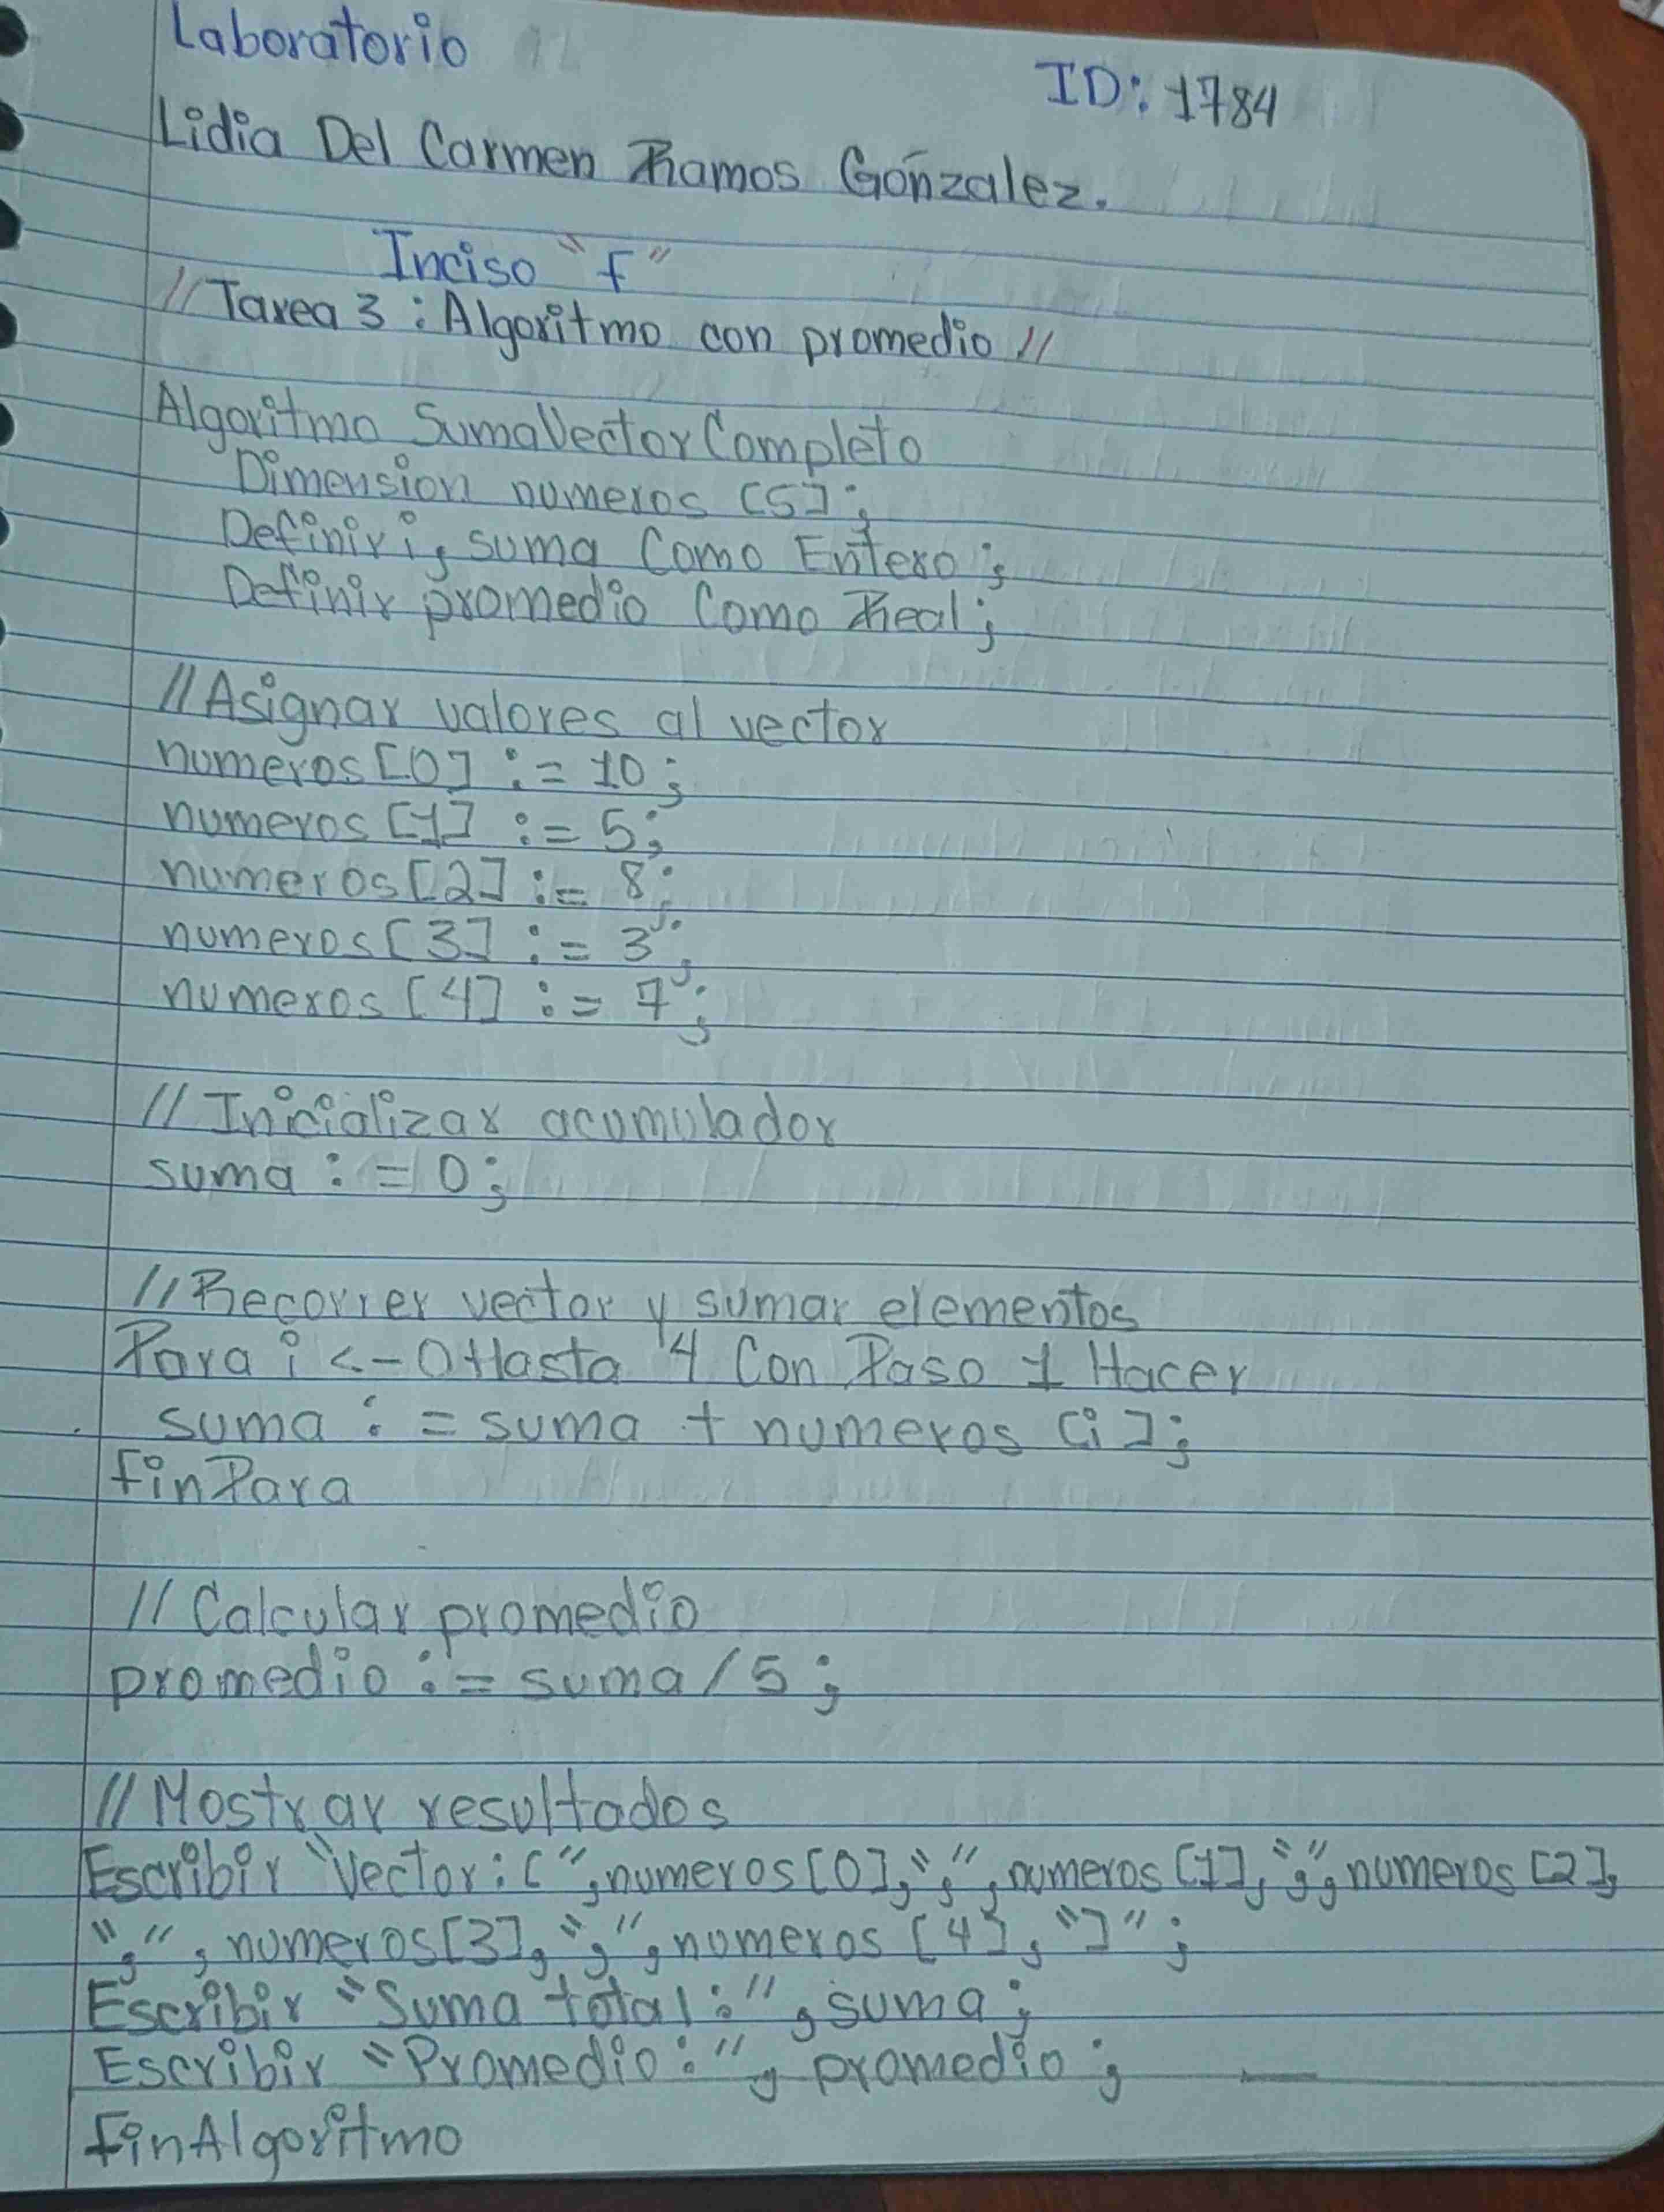 Laboratorio
ID: 1784
Lidia Del Carmen Ramos Gónzalez.
Inciso "f"
//Tarea 3 : Algoritmo con promedio //
Algoritmo SumaVectorCompleto
Dimension numeros [5];
Definir i, suma Como Entero;
Definir promedio Como Real;
//Asignar valores al vector
numeros[0] := 10;
numeros[1] := 5;
numeros[2] := 8;
numeros[3] := 3;
numeros[4] := 7;
//Inicializar acumulador
suma := 0;
//Recorrer vector y sumar elementos
Para i <- 0 Hasta 4 Con Paso 1 Hacer
suma := suma + numeros [i];
finPara
//Calcular promedio
promedio := suma/5;
//Mostrar resultados
Escribir "Vector: [", numeros[0], ",", numeros[1], ",", numeros[2],
",", numeros[3], ",", numeros [4], "]";
Escribir "Suma total:", suma;
Escribir "Promedio:", promedio;
finAlgoritmo